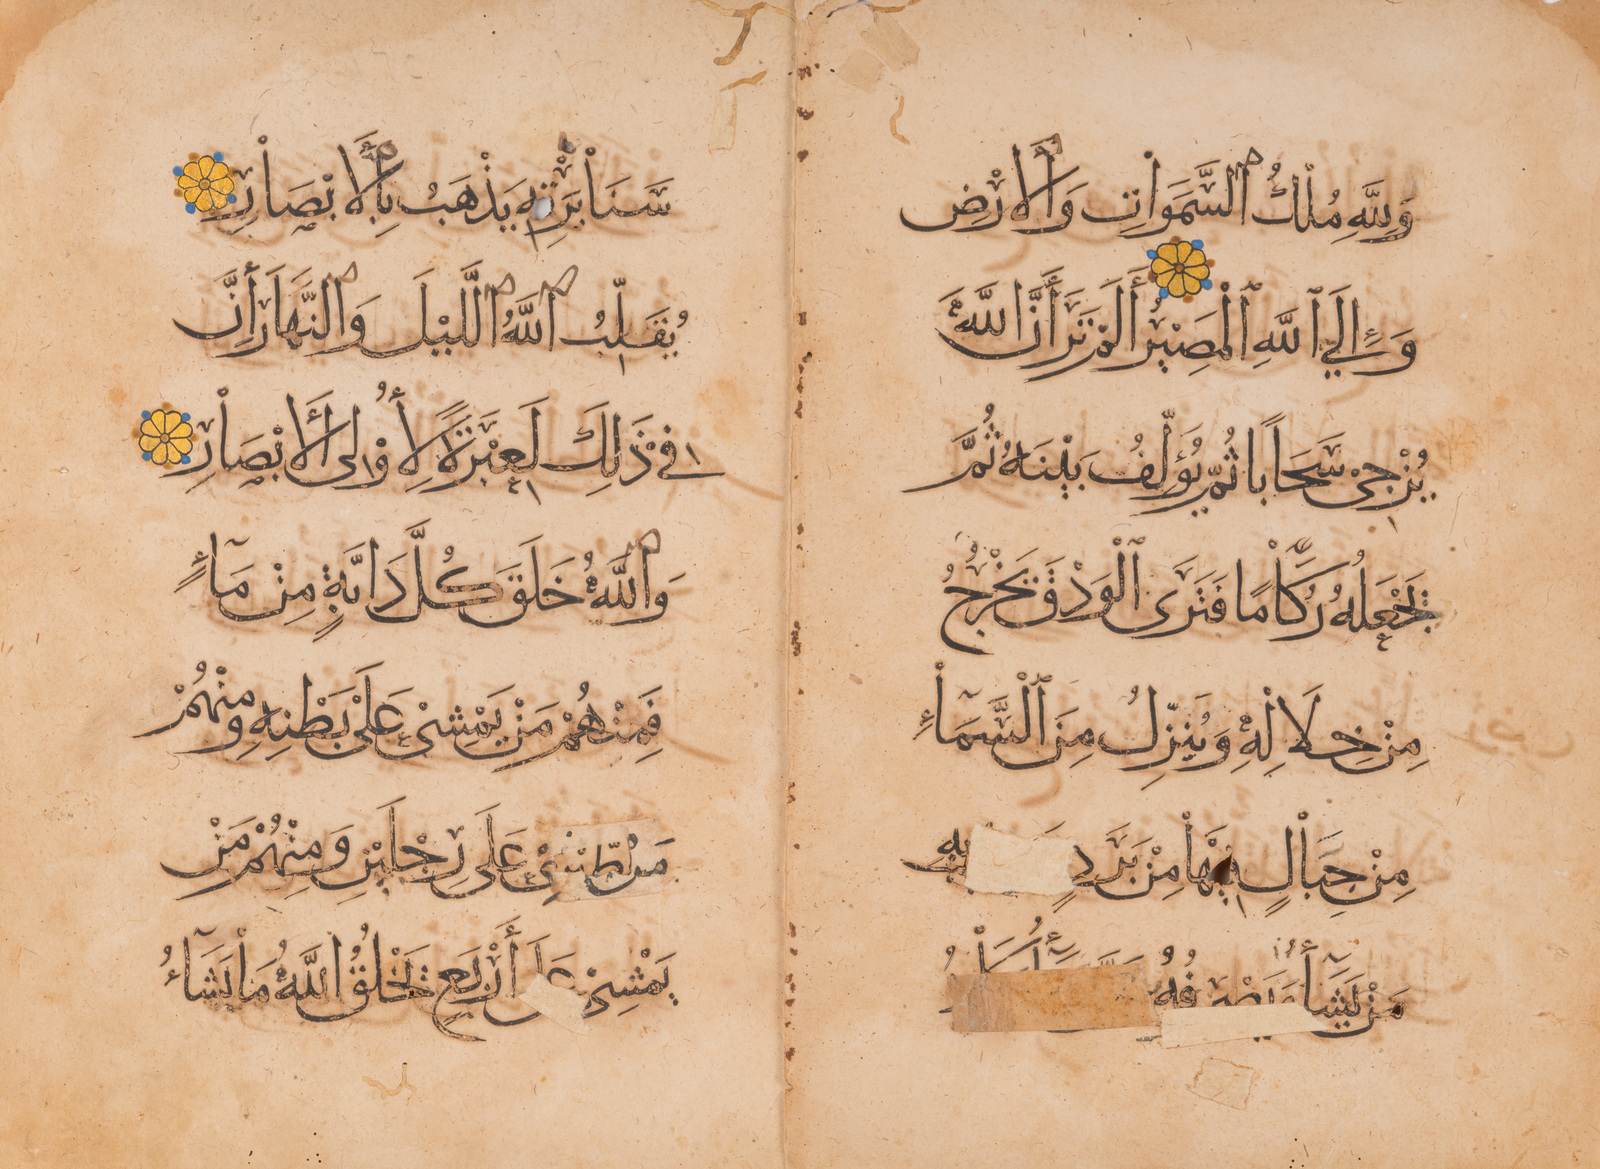 وَلِلَّهِ مُلْكُ السَّمَوَاتِ وَالْأَرْضِ
وَإِلَى اللَّهِ الْمَصِيرُ أَلَمْ تَرَ أَنَّ اللَّهَ
يُزْجِي سَحَابًا ثُمَّ يُؤَلِّفُ بَيْنَهُ ثُمَّ
يَجْعَلُهُ رُكَامًا فَتَرَى الْوَدْقَ يَخْرُجُ
مِنْ خِلَالِهِ وَيُنَزِّلُ مِنَ السَّمَاءِ
مِنْ جِبَالٍ فِيهَا مِنْ بَرَدٍ بِهِ
مَنْ يَشَاءُ وَيَصْرِفُهُ
سَنَا بَرْقِهِ يَذْهَبُ بِالْأَبْصَارِ
يُقَلِّبُ اللَّهُ اللَّيْلَ وَالنَّهَارَ إِنَّ
فِي ذَلِكَ لَعِبْرَةً لِأُولِى الْأَبْصَارِ
وَاللَّهُ خَلَقَ كُلَّ دَابَّةٍ مِنْ مَاءٍ
فَمِنْهُمْ مَنْ يَمْشِي عَلَى بَطْنِهِ وَمِنْهُمْ
مَنْ عَلَى رِجْلَيْنِ وَمِنْهُمْ مَنْ
يَمْشِي عَلَى أَرْبَعٍ يَخْلُقُ اللَّهُ مَا يَشَاءُ